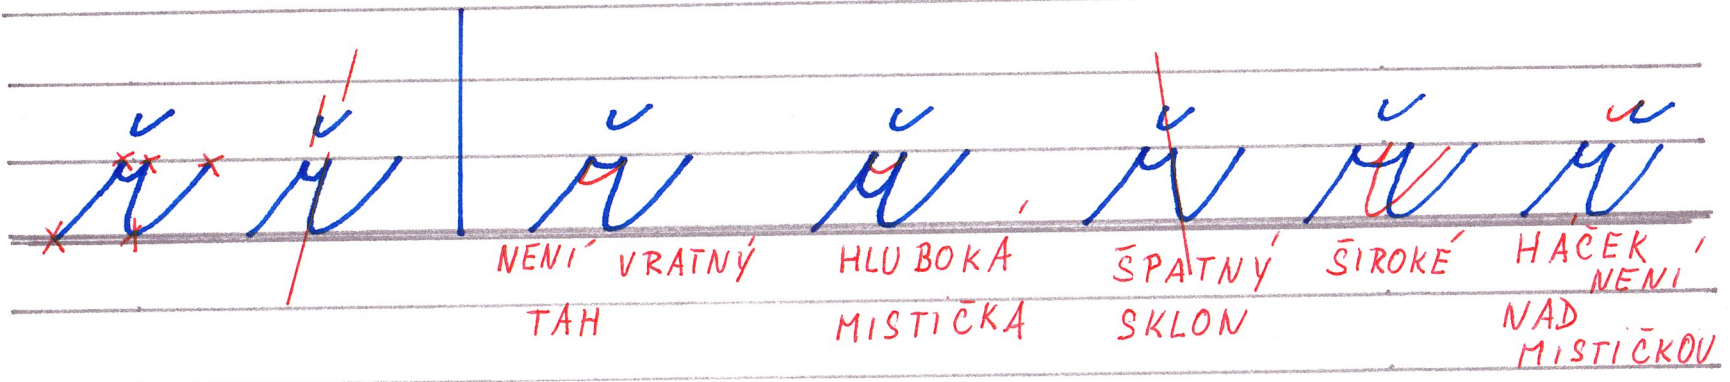 ř ř ř ř ř ř ř
NENÍ VRATNÝ
TAH
HLUBOKÁ
MISTIČKA
ŠPATNÝ
SKLON
ŠIROKÉ
HÁČEK
NENÍ
NAD
MISTIČKOU